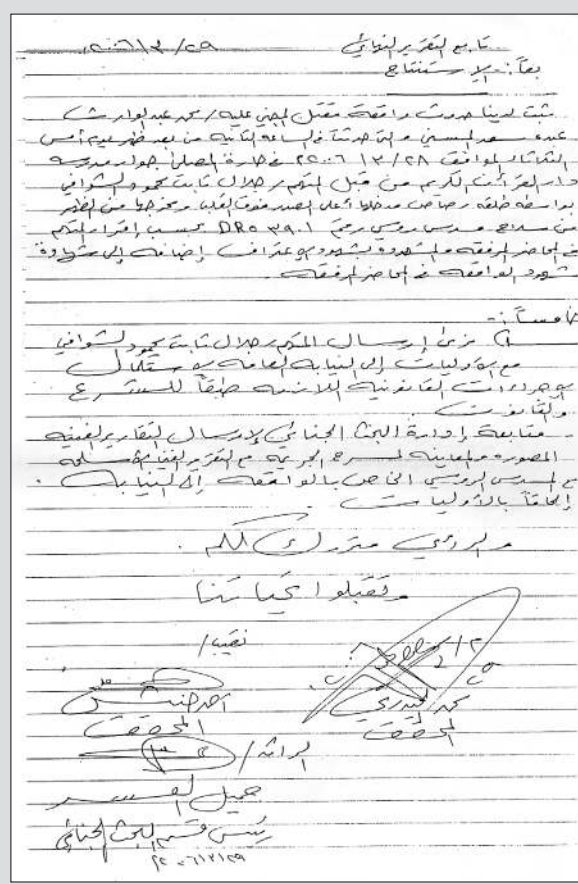 تابع التقرير النهائي ٢٠٠٦/٣/٢٩
رابعاً:- الإستنتاج
ثبت لدينا حدوث واقعة مقتل المجني عليه/ محمد عبدالوارث
عبده سعد المسني والتي حدثت في الساعة الثانية من بعد ظهر يوم أمس
الثلاثاء الموافق ٢٠٠٦/٣/٢٨ في حارة المصلى جوار مدرسة
دار القرآن الكريم من قبل المتهم/ جلال ثابت محمود الشوافي
بواسطة طلقة رصاص مدخلها أعلى الصدر فوق القلب ومخرجها من الظهر
من سلاح مسدس روسي رقم DR٥ ٣٩٠١ بحسب إقرار المتهم
في المحاضر المرفقة والمشهود بشهود الإعتراف إضافة إلى شهادة
شهود الواقعة في المحاضر المرفقة
خامساً:-
نرى إرسال المتهم/ جلال ثابت محمود الشوافي
مع الأوليات إلى النيابة العامة لإستكمال
الإجراءات القانونية اللازمة طبقاً للشرع
والقانون
- متابعة إدارة البحث الجنائي لإرسال التقارير الفنية
المصورة والمعاينة لمسرح الجريمة مع التقرير الفني للأسلحة
مع المسدس الروسي الخاص بالواقعة إلى النيابة
إلحاقاً بالأوليات
والرأي متروك لكم
وتقبلوا تحياتنا
نقيب/
أحمد حنش
محمد
المحقق
المحقق
الرائد/
جميل
رئيس قسم البحث الجنائي
٢٠٠٦/٣/٢٩